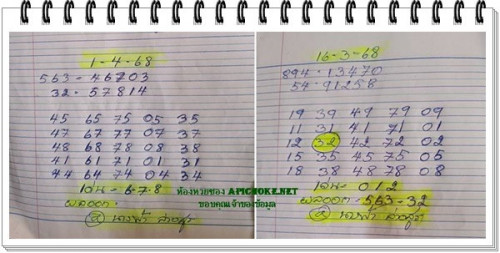 1-4-68
563-46703
32.57814
45 65 75 05 35
47 67 77 07 37
48 68 78 08 38
41 61 71 01 31
44 64 74 04 34
เด่น-6-7-8
ผลออก.
ห้องหวยของ APICHOKE.NET
ขอบคุณเจ้าของข้อมูล
16-3-68
894.13470
54.91258
19 39 49 79 09
11 31 41 71 01
12 32 42 72 02
15 35 45 75 05
18 38 48 78 08
เด่น-012
ผลออก-563-32